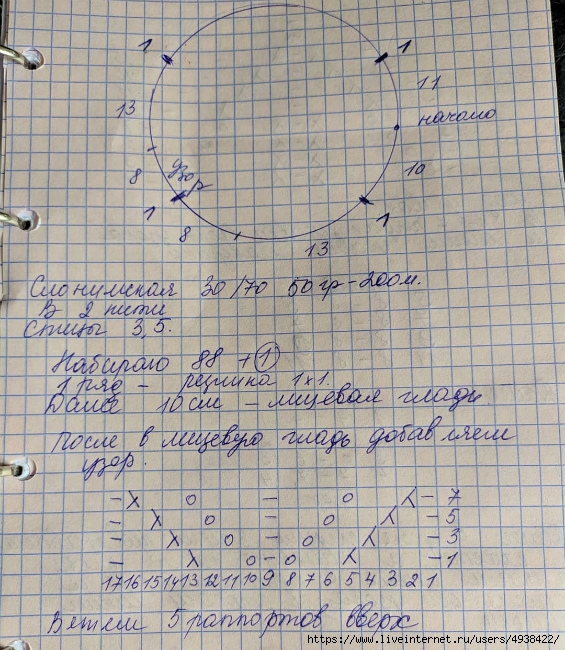 1 1
11
13 начало
узор
8 10
1 1
8
13
Слонимская 30/70 50гр-200м.
В 2 нити
Спицы 3,5.
Набираю 88 + 1
1 ряд - резинка 1х1.
Далее 10 см - лицевая гладь
После в лицевую гладь добавляем
узор.
- X O - O Λ - 7
- X O - O Λ - 5
- X O - O Λ - 3
- X O - O Λ - 1
17 16 15 14 13 12 11 10 9 8 7 6 5 4 3 2 1
Вяжем 5 раппортов вверх
https://www.liveinternet.ru/users/4938422/